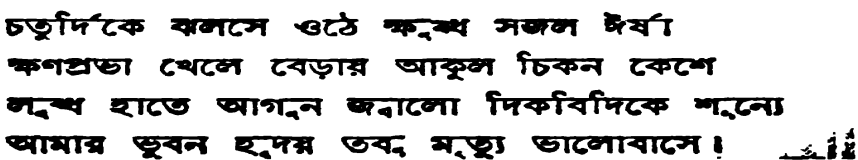 চতুর্দিকে ঝলসে ওঠে ক্ষুব্ধ সজল ঈর্ষা
ক্ষণপ্রভা খেলে বেড়ায় আকুল চিকন কেশে
লুব্ধ হাতে আগুন জ্বালো দিকবিদিকে শূন্যে
আমার ভুবন হৃদয় তবু মৃত্যু ভালোবাসে।